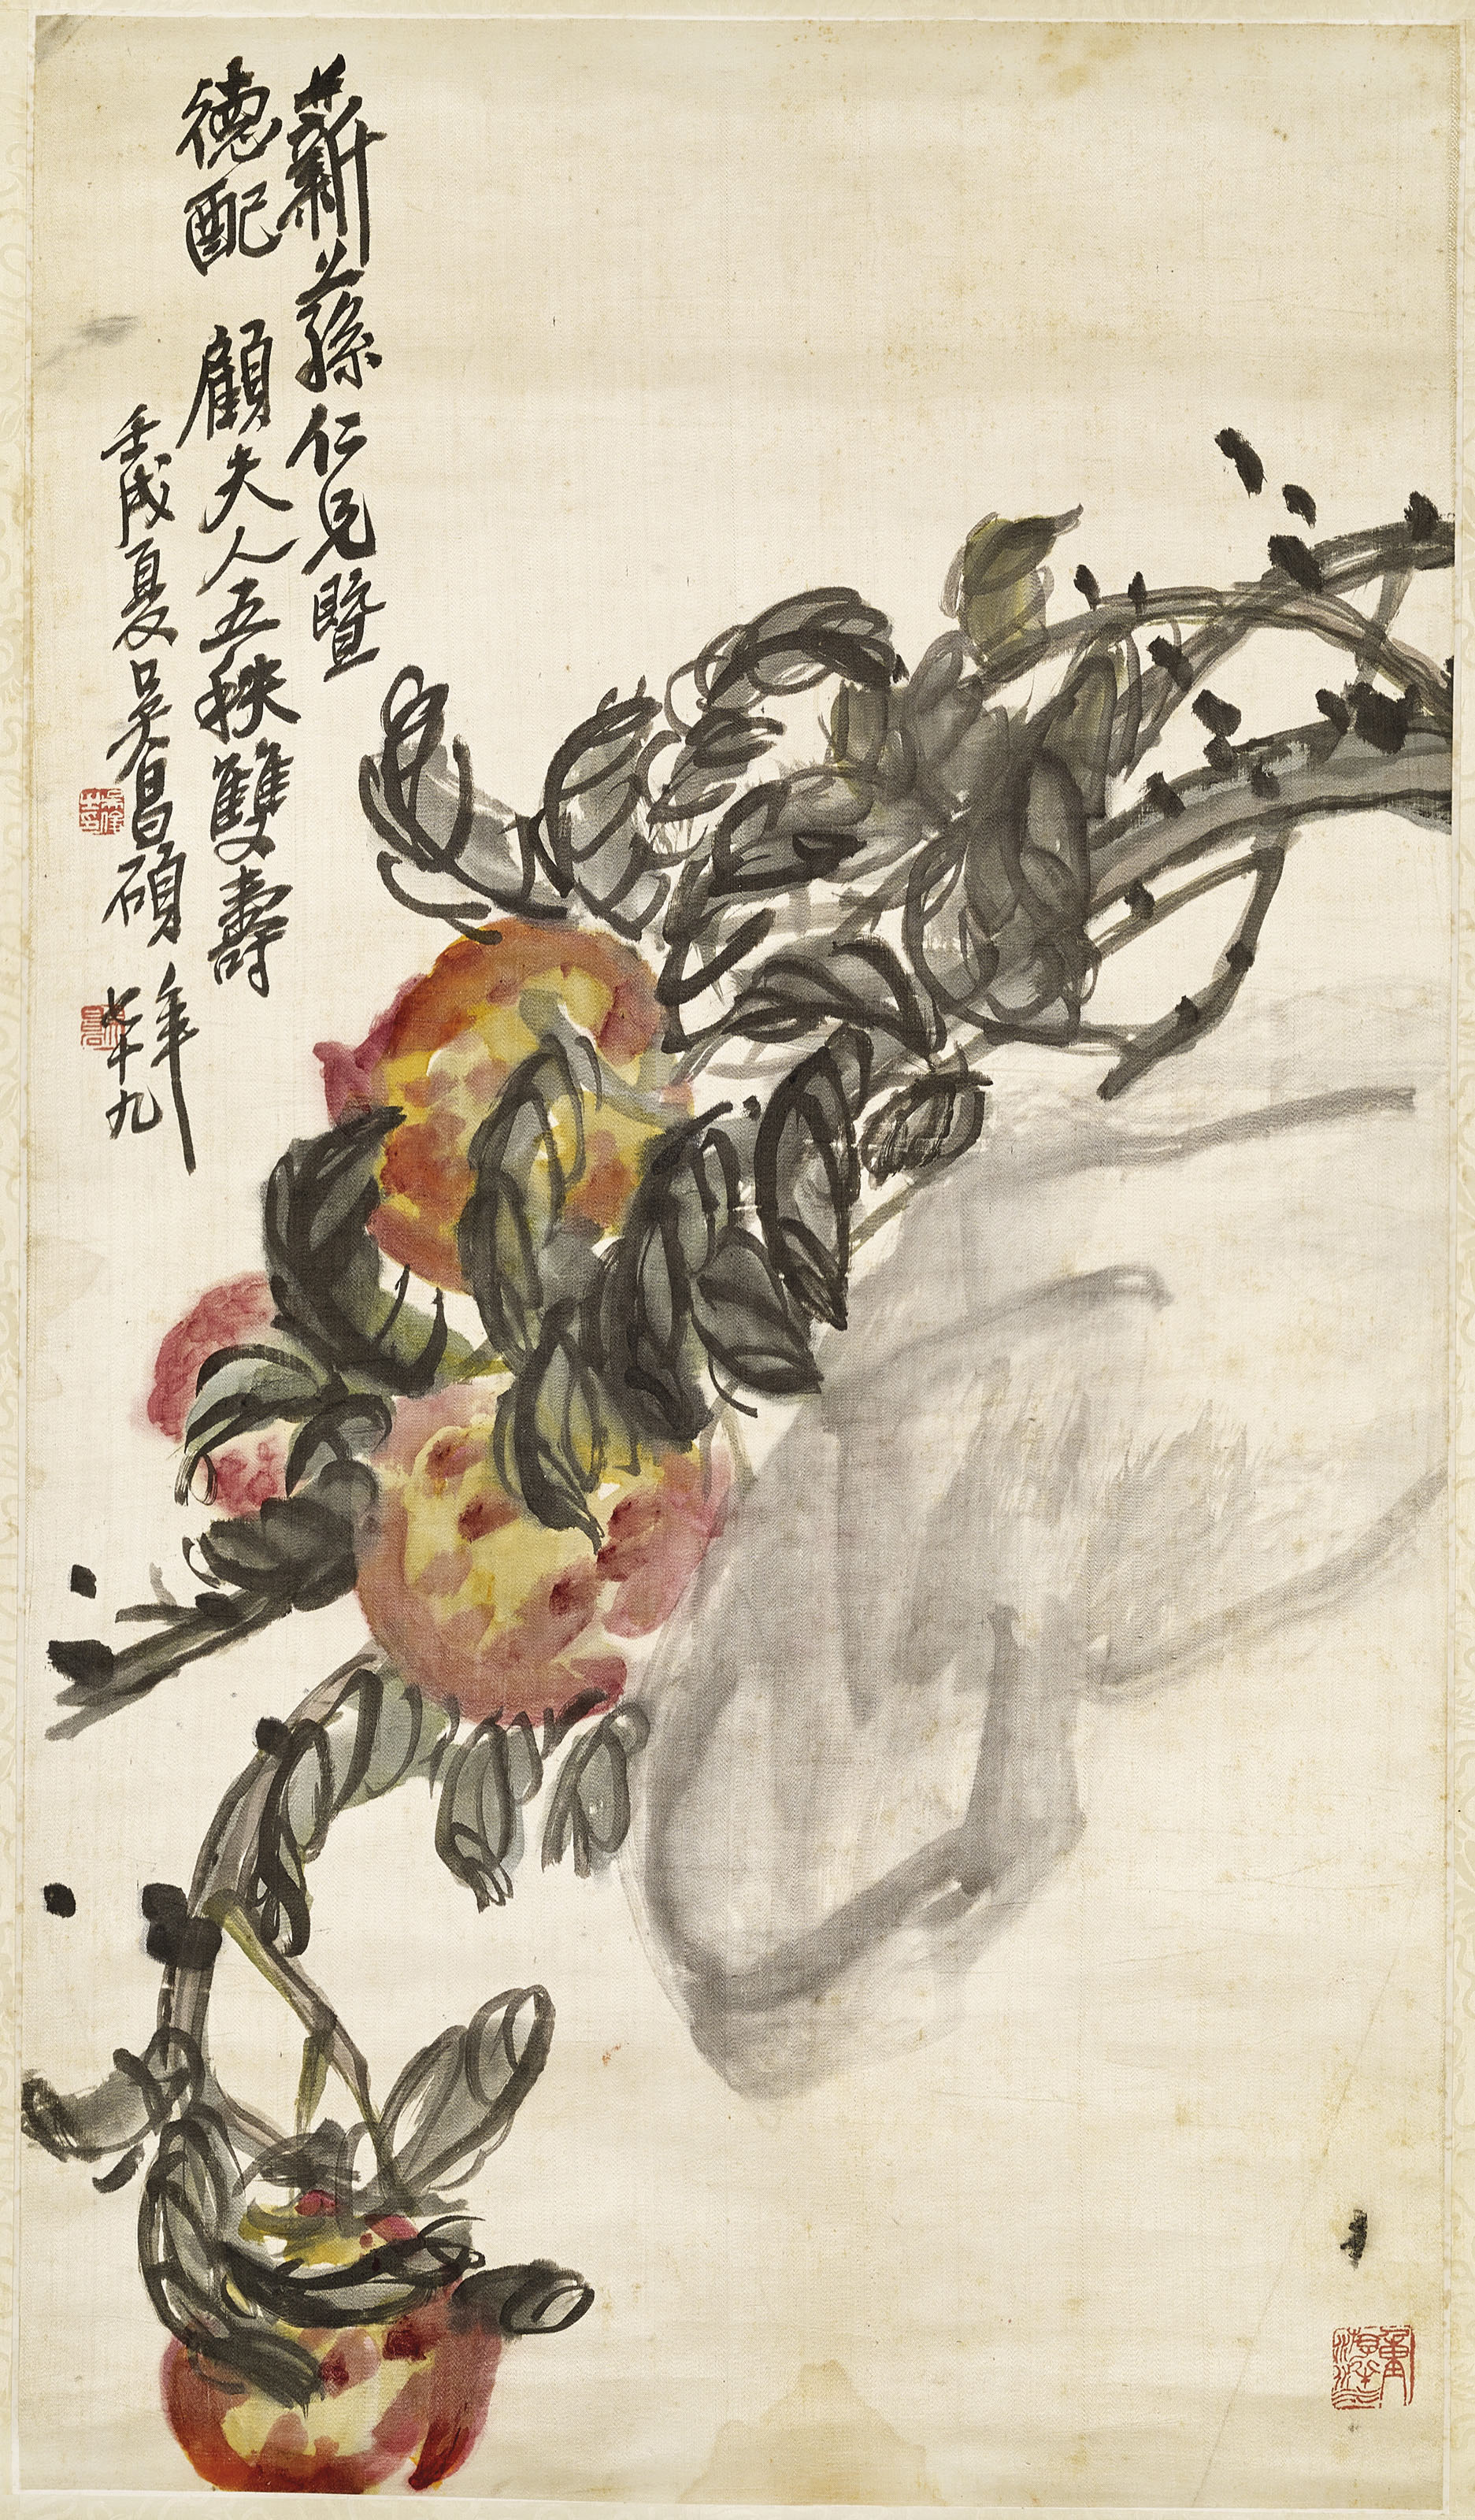 蘄蓀仁兄暨
德配 顧夫人五秩雙壽
壬戌夏吳昌碩
年七十九